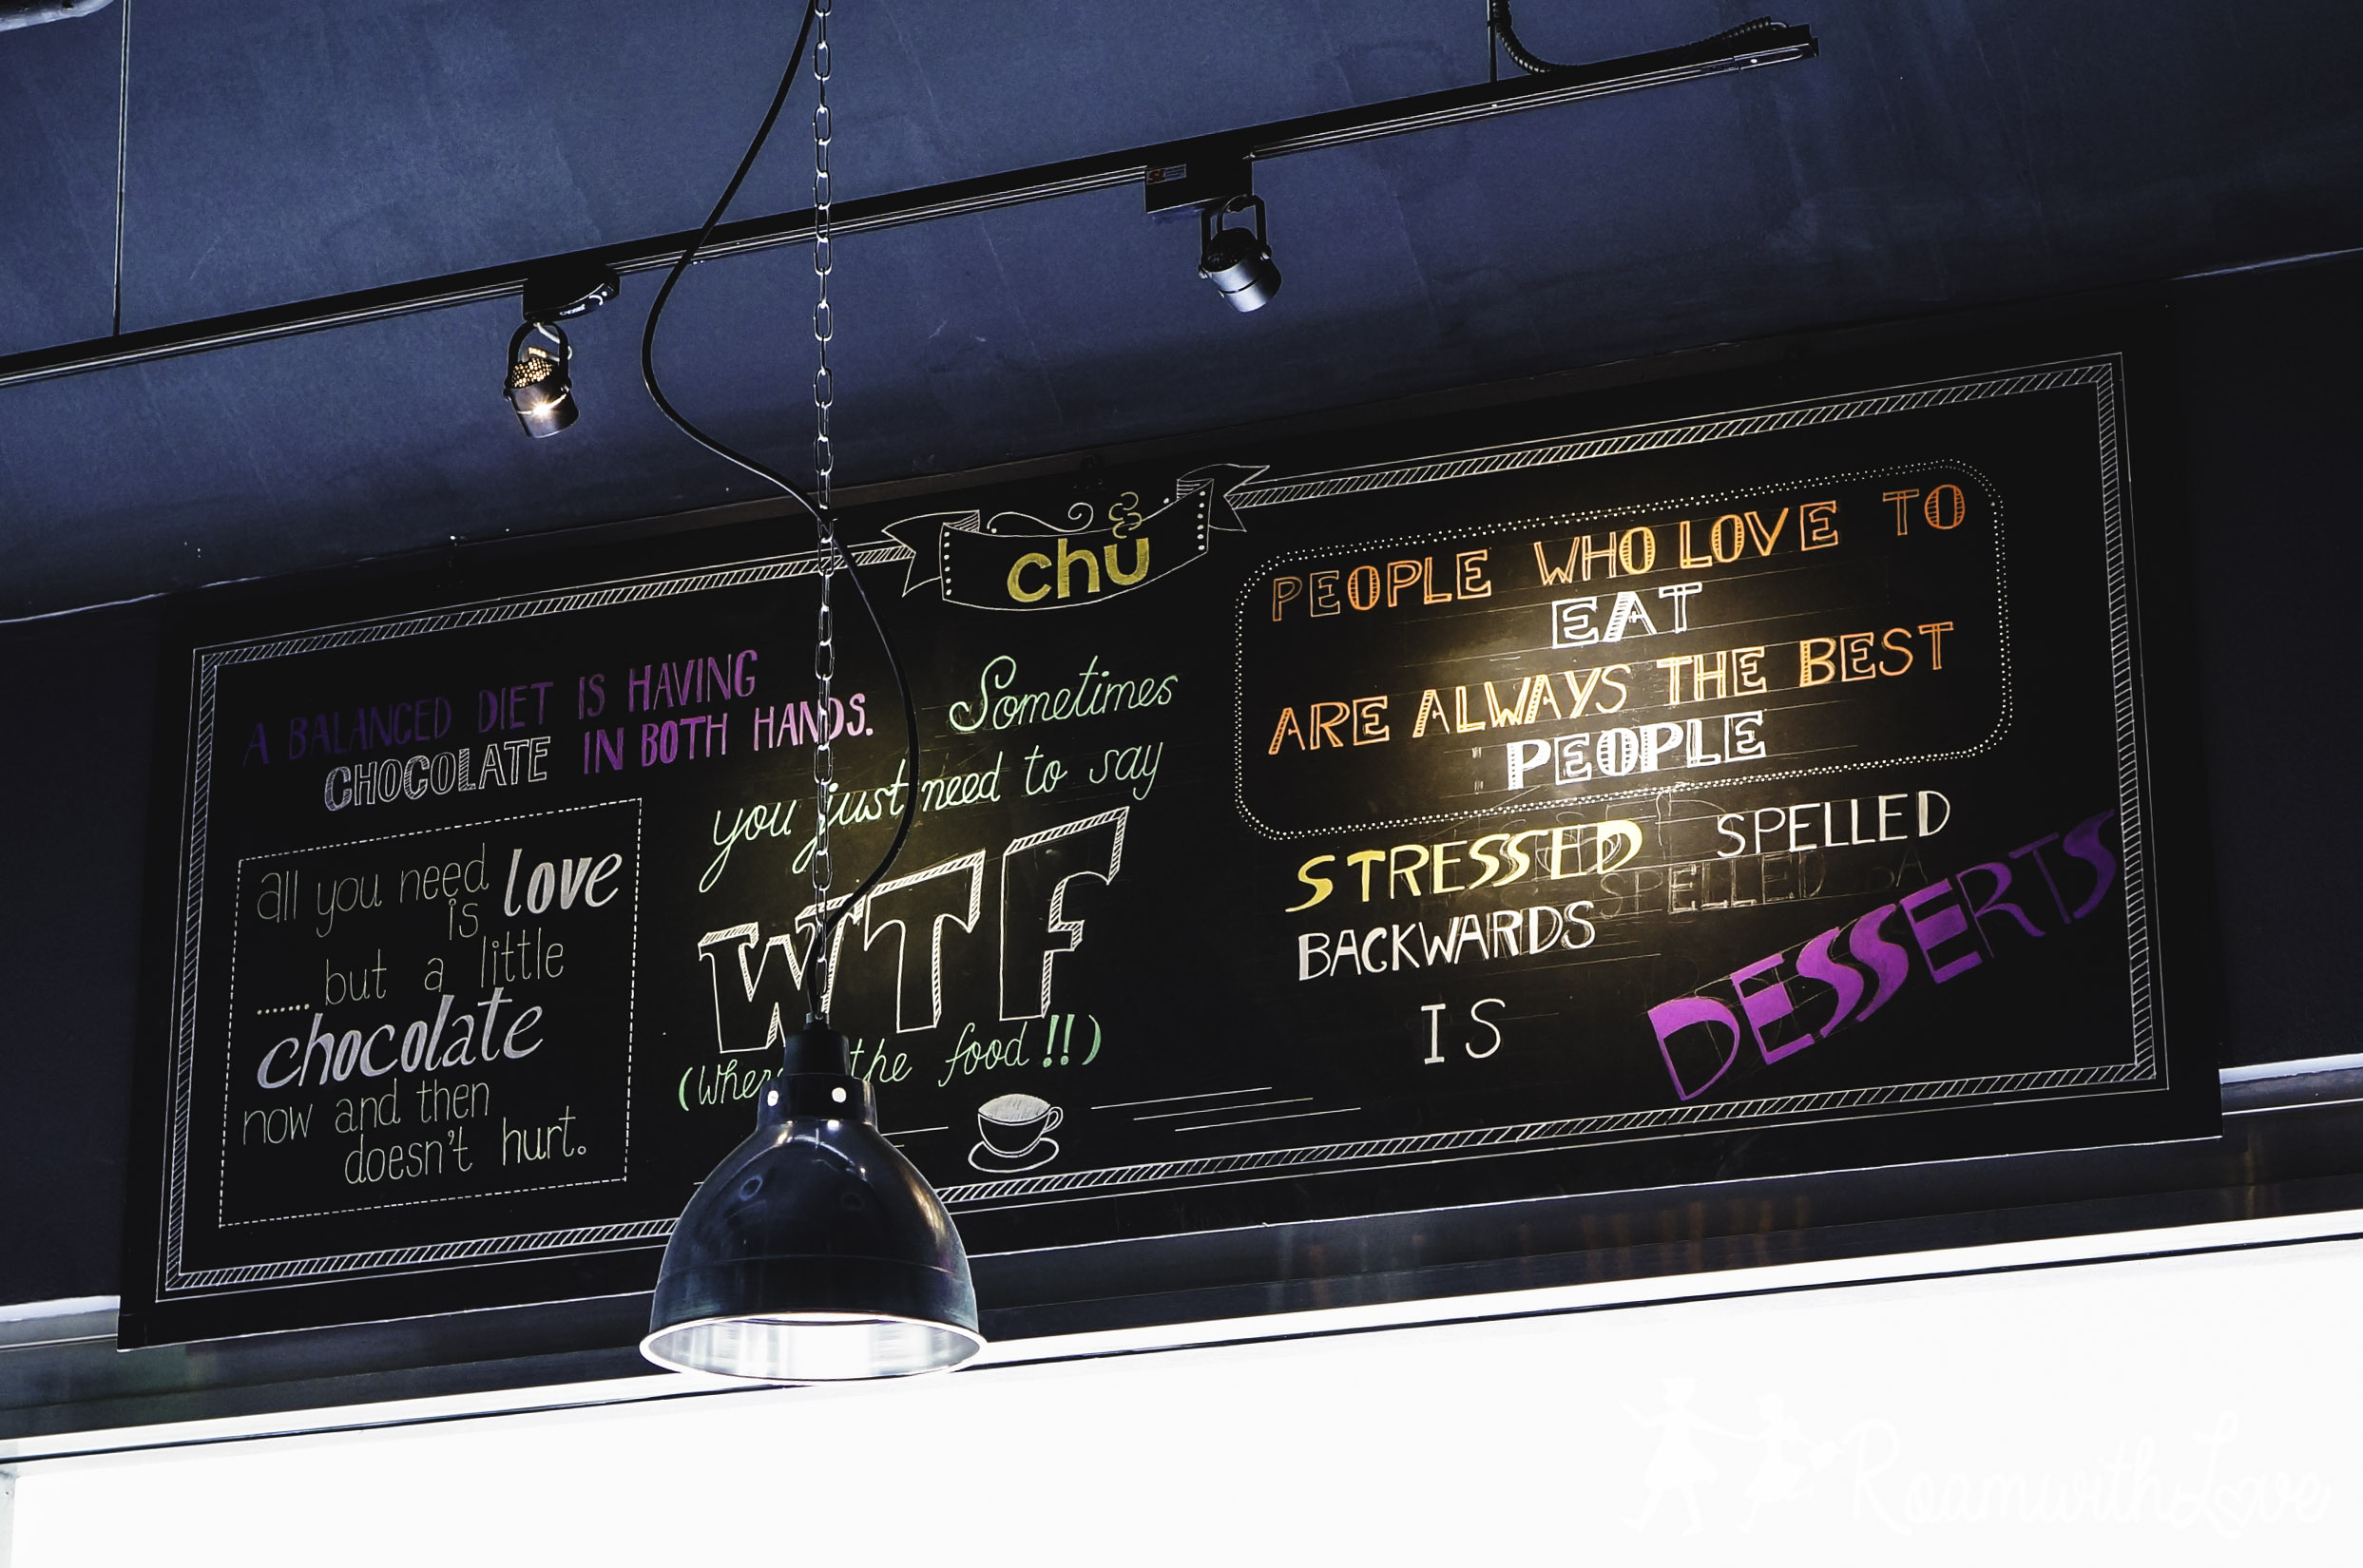 chu
A BALANCED DIET IS HAVING
CHOCOLATE IN BOTH HANDS.
all you need
is love
......but a little
chocolate
now and then
doesn't hurt.
Sometimes
you just need to say
WTF
(Where the food!!)
PEOPLE WHO LOVE TO
EAT
ARE ALWAYS THE BEST
PEOPLE
STRESSED SPELLED
SPELLED
BACKWARDS
IS DESSERTS
RoamwithLove